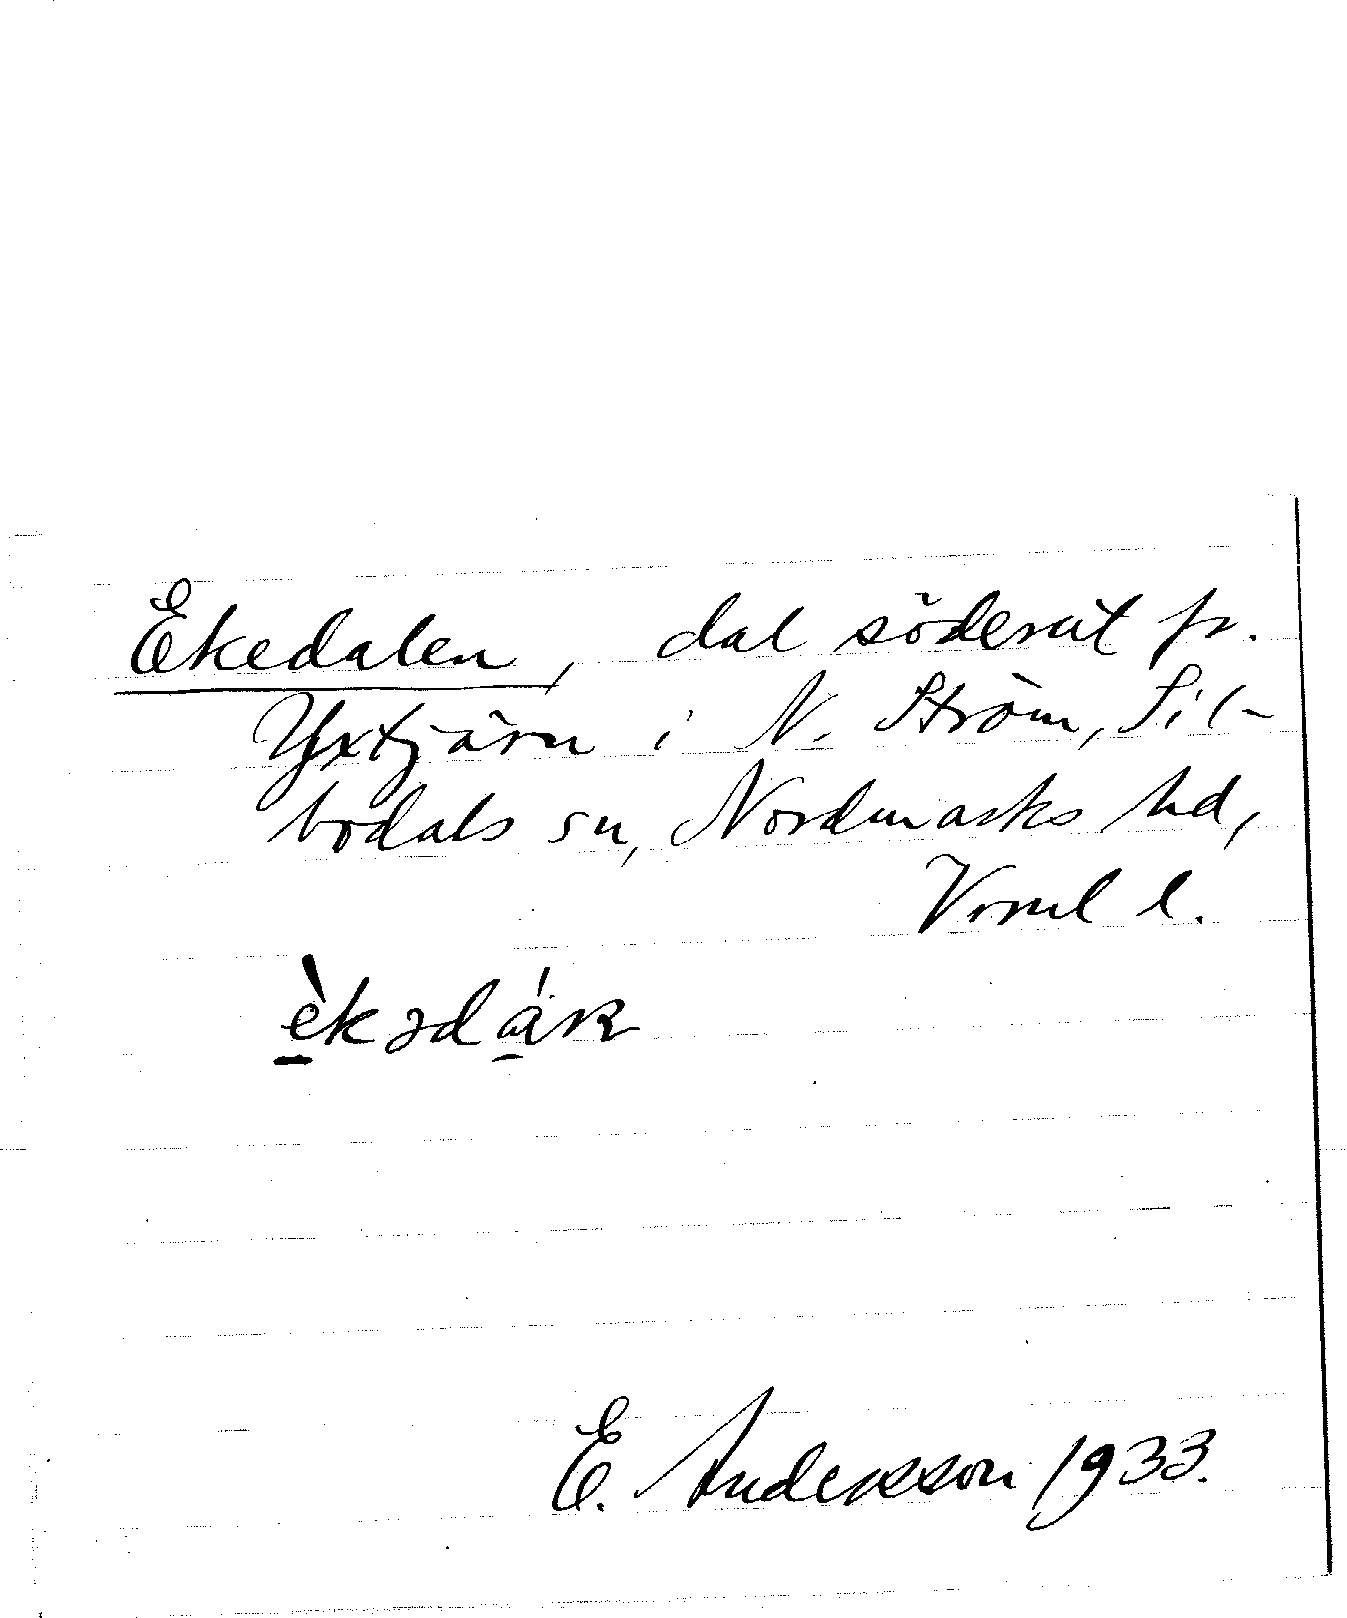 Ekedalen, dal söderut fr.
Yxtjärn i N. Ström, Sil-
bodals sn, Nordmarks hd,
Vrml l.
èkədáɴ
E. Andersson 1933.